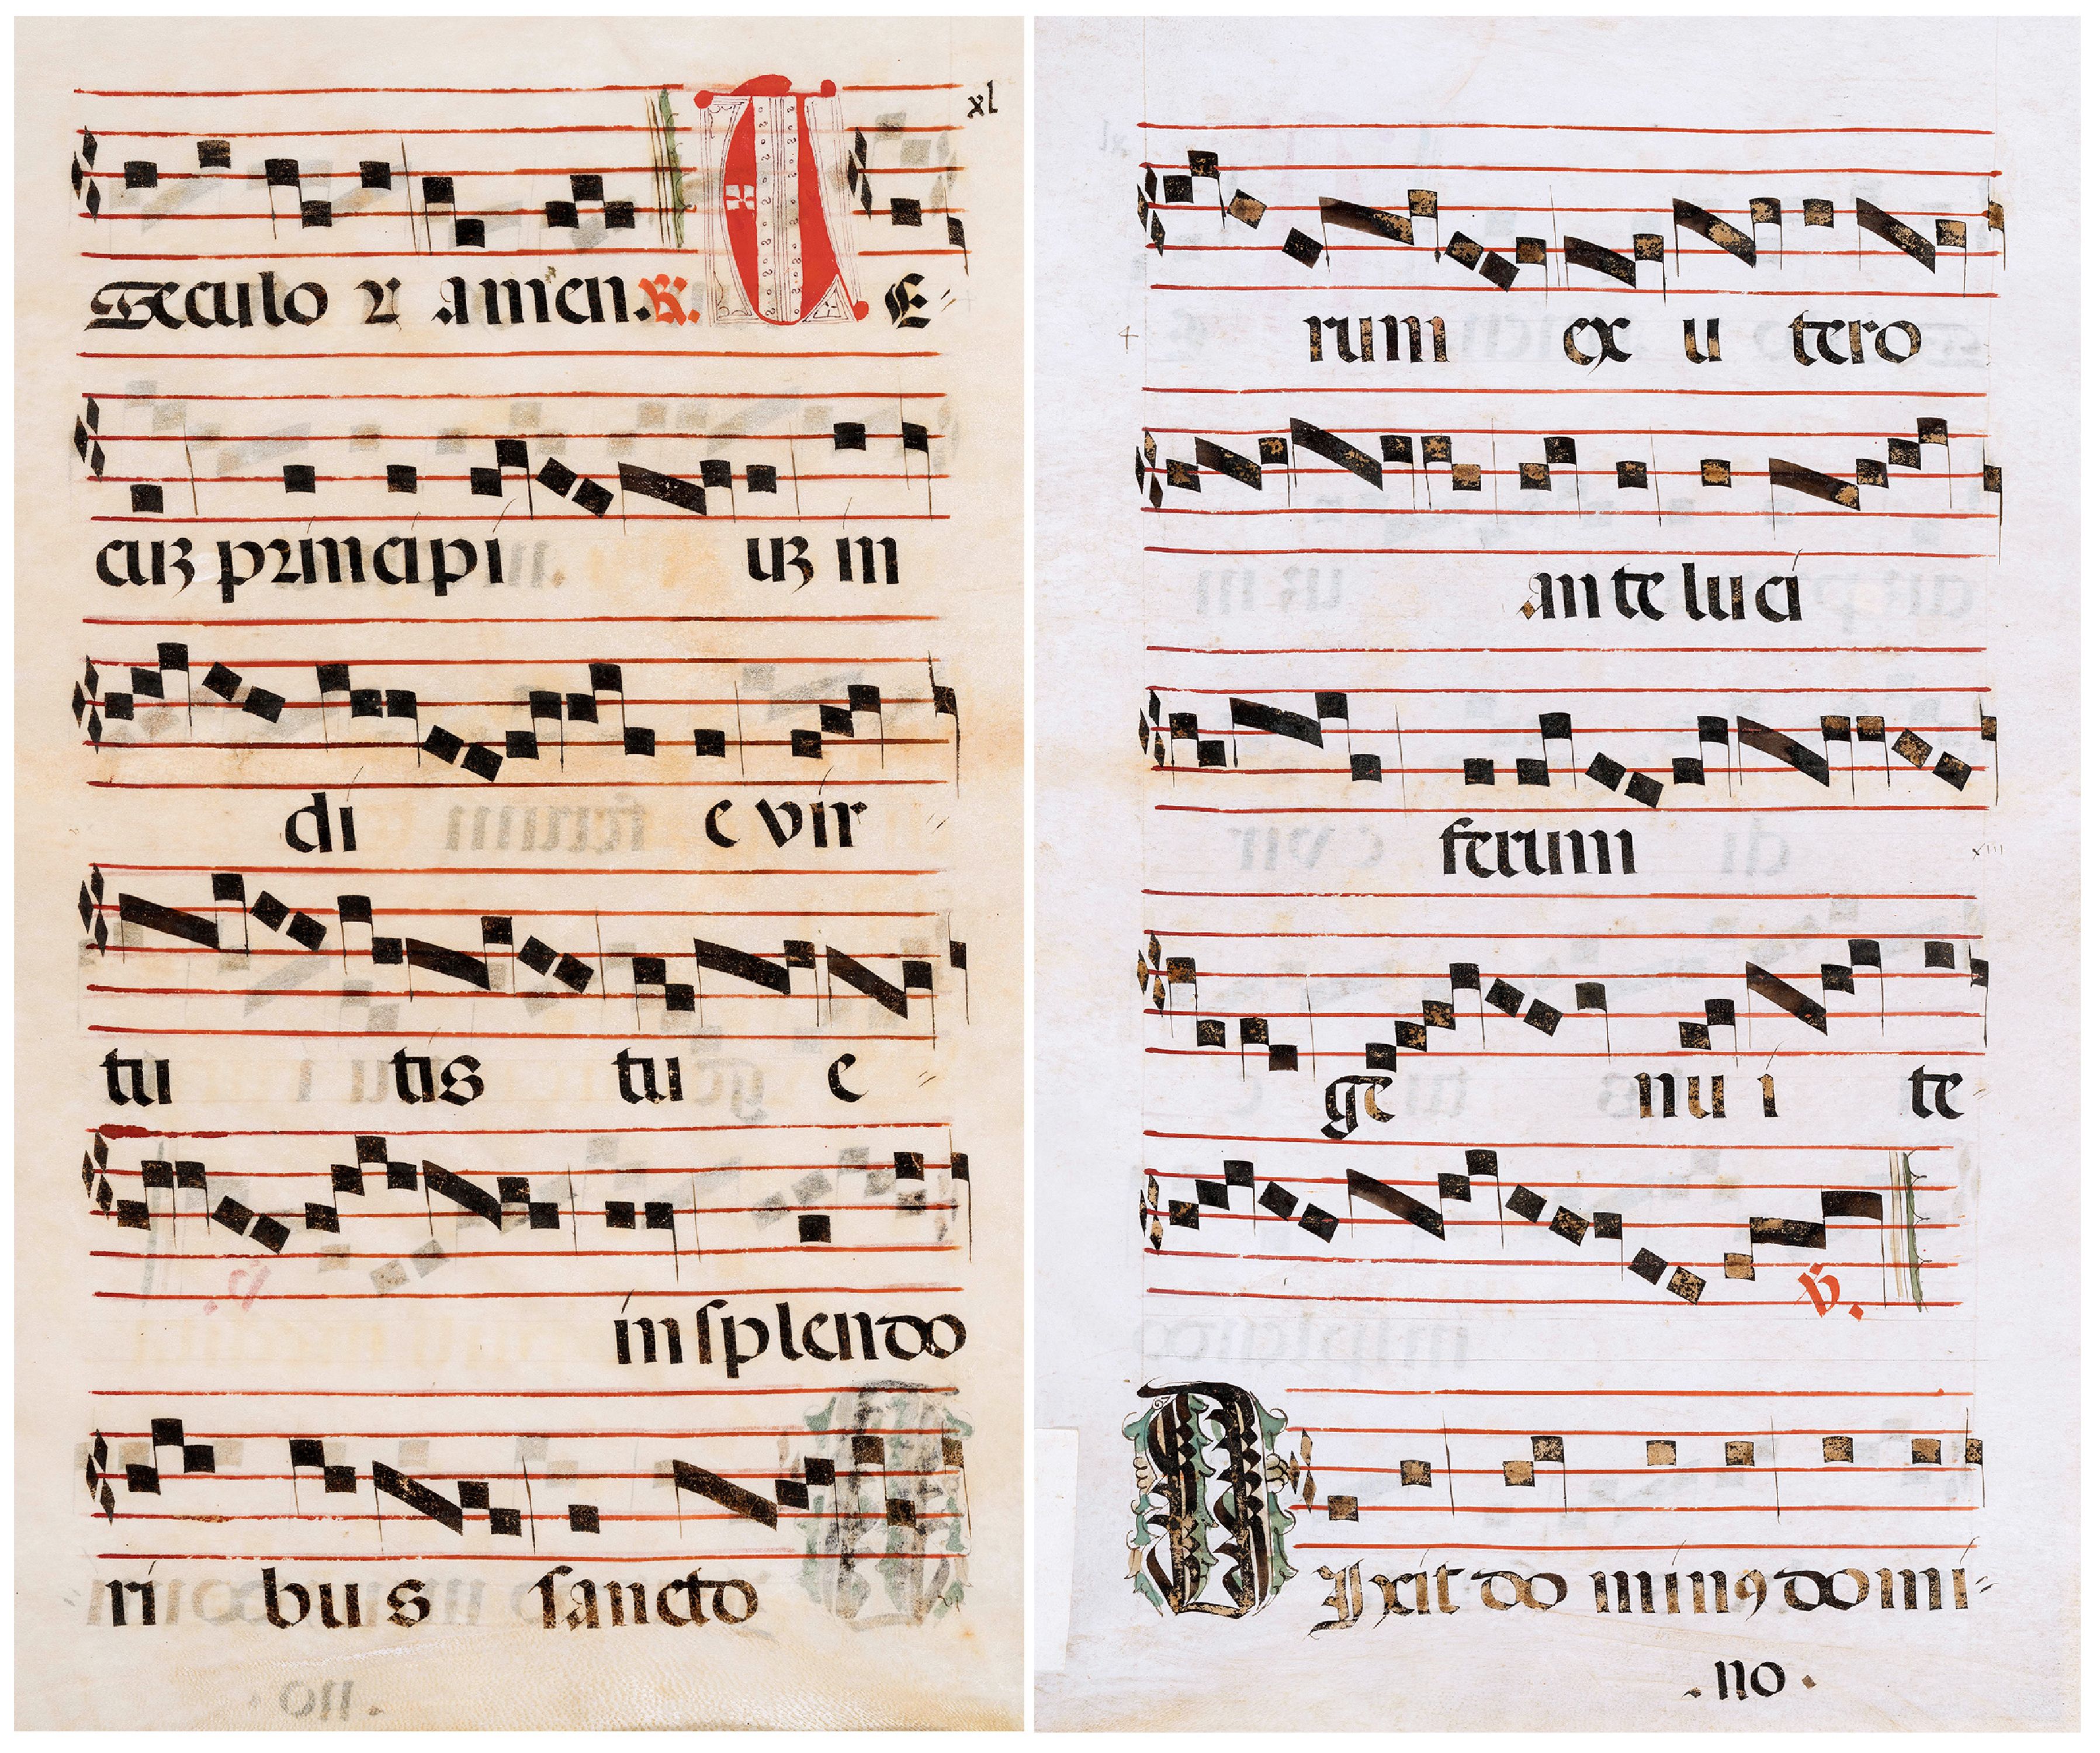 xl
Seculoꝝ amen. ℟. TE-
cuȝ principi uȝ in
di e vir-
tu tis tu e-
in splendo
ri bus sancto
rum ex u tero
an te luci
ferum
xiii
ge nu i te
℣.
Dixit dominꝰ domi-
.no.